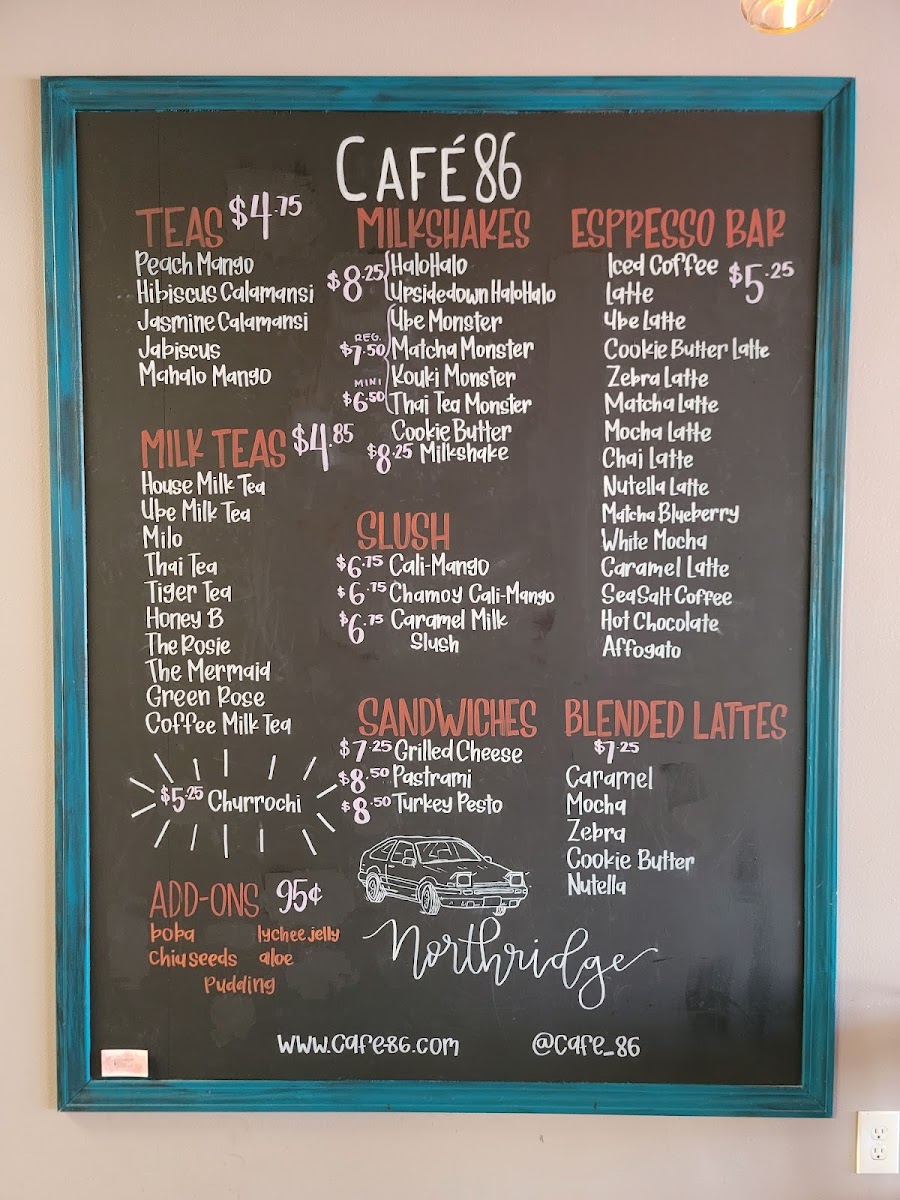 CAFÉ 86
TEAS $4.75
Peach Mango
Hibiscus Calamansi
Jasmine Calamansi
Jabiscus
Mahalo Mango
MILK TEAS $4.85
House Milk Tea
Ube Milk Tea
Milo
Thai Tea
Tiger Tea
Honey B
The Rosie
The Mermaid
Green Rose
Coffee Milk Tea
$5.25 Churrochi
ADD-ONS 95¢
boba lychee jelly
Chia seeds aloe
Pudding
MILKSHAKES
$8.25 HaloHalo
Upsidedown HaloHalo
Ube Monster
REG. $7.50 Matcha Monster
Kouki Monster
MINI $6.50 Thai Tea Monster
Cookie Butter
$8.25 Milkshake
SLUSH
$6.75 Cali-Mango
$6.75 Chamoy Cali-Mango
$6.75 Caramel Milk
Slush
SANDWICHES
$7.25 Grilled Cheese
$8.50 Pastrami
$8.50 Turkey Pesto
Northridge
ESPRESSO BAR
Iced Coffee $5.25
Latte
Ube Latte
Cookie Butter Latte
Zebra Latte
Matcha Latte
Mocha Latte
Chai Latte
Nutella Latte
Matcha Blueberry
White Mocha
Caramel Latte
Sea Salt Coffee
Hot Chocolate
Affogato
BLENDED LATTES
$7.25
Caramel
Mocha
Zebra
Cookie Butter
Nutella
www.cafe86.com @cafe_86